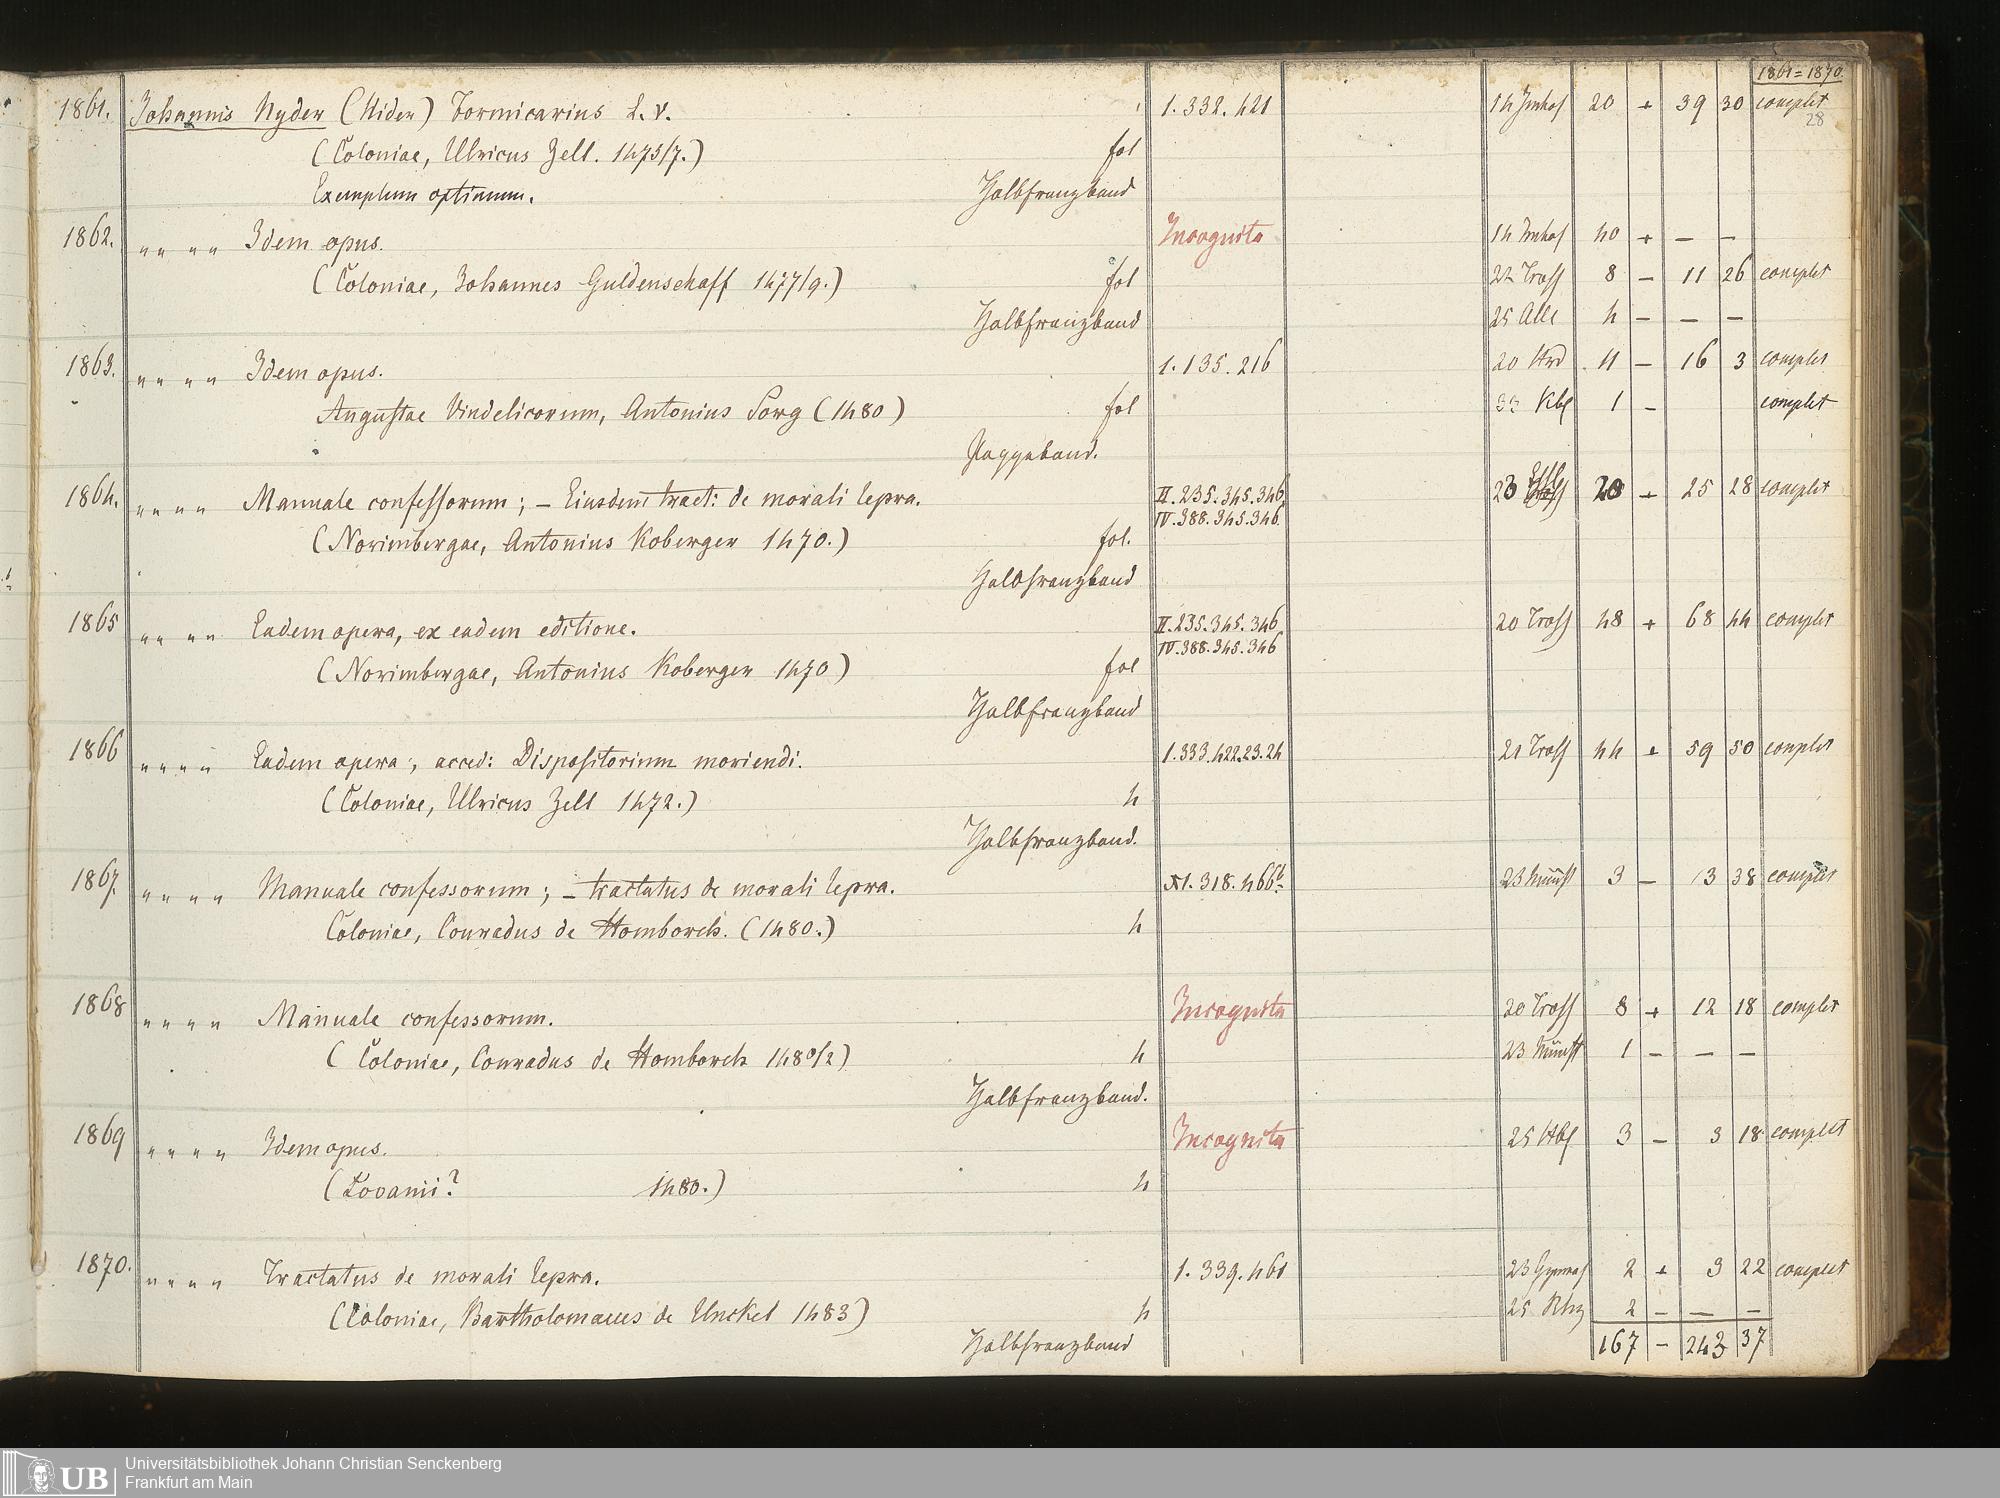 1861=1870.
1861. Johannis Nyder (Nider) Formicarius L. V. 1. 332. 421 14 Imhof 20 + 39 30 complet
28
(Coloniae, Ulricus Zell. 1473/7.) fol
Exemplum optimum. Halbfranzband
1862. " " " " Idem opus. Incognita 14 Imhof 40 + — —
(Coloniae, Johannes Guldenschaff 1477/9.) fol 22 Tross 8 — 11 26 complet
Halbfranzband 25 4 — — —
1863. " " " " Idem opus. 1. 135. 216 20 11 — 16 3 complet
Augustae Vindelicorum, Antonius Sorg (1480) fol 1 — complet
Pappeband.
1864. " " " " Manuale confessorum; — Eiusdem tract: de morali lepra. II. 235. 345. 346 20 + 25 28 complet
IV. 388. 345. 346.
(Norimbergae, Antonius Koberger 1470.) fol.
Halbfranzband
1865 " " " " Eadem opera, ex eadem editione. II. 235. 345. 346 20 Tross 48 + 68 44 complet
IV. 388. 345. 346
(Norimbergae, Antonius Koberger 1470) fol
Halbfranzband
1866 " " " " Eadem opera, acced: Dispositorium moriendi. 1. 333. 422. 23. 24 21 Tross 44 + 59 50 complet
(Coloniae, Ulricus Zell 1472.) 4
Halbfranzband.
1867. " " " " Manuale confessorum; — tractatus de morali lepra. XI. 318. 466 23 Münst 3 — 13 38 complet
Coloniae, Conradus de Homborch. (1480.) 4
1868 " " " " Manuale confessorum. Incognita 20 Tross 8 + 12 18 complet
(Coloniae, Conradus de Homborch 1480/2) 4 23 Münst 1 — — —
Halbfranzband.
1869 " " " " Idem opus. Incognita 25 3 — 3 18 complet
(Lovanii? 1480.) 4
1870. " " " " Tractatus de morali lepra. 1. 339. 461 23 2 + 3 22 complet
(Coloniae, Bartholomaeus de Unckel 1483) 4 25 2 — — —
Halbfranzband 167 — 243 37
UB Universitätsbibliothek Johann Christian Senckenberg
Frankfurt am Main